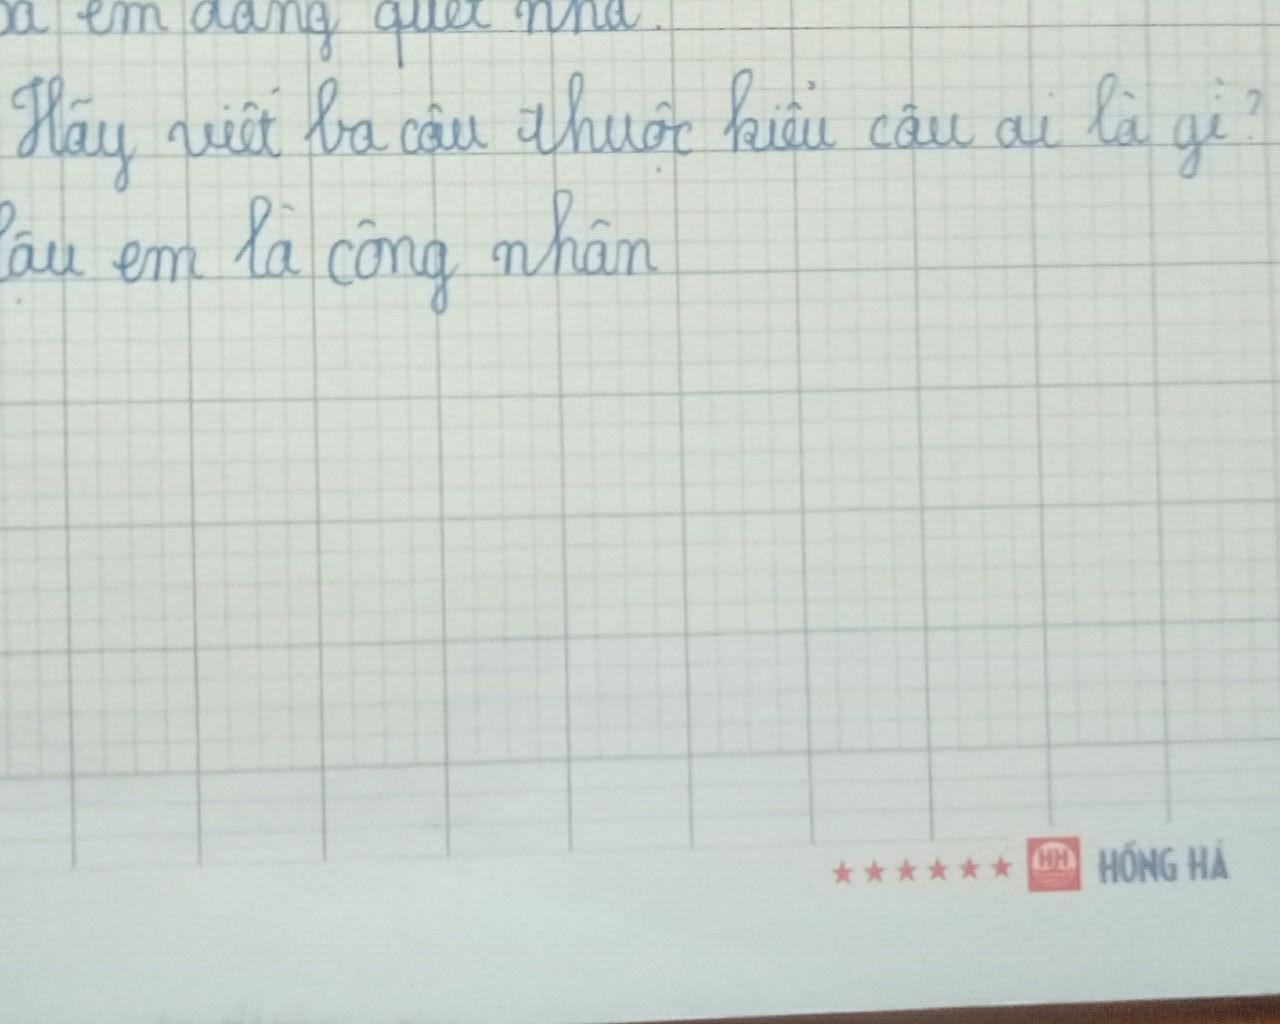 em đang quét nhà.
Hãy viết ba câu thuộc kiểu câu ai là gì?
em là công nhân
HỒNG HÀ